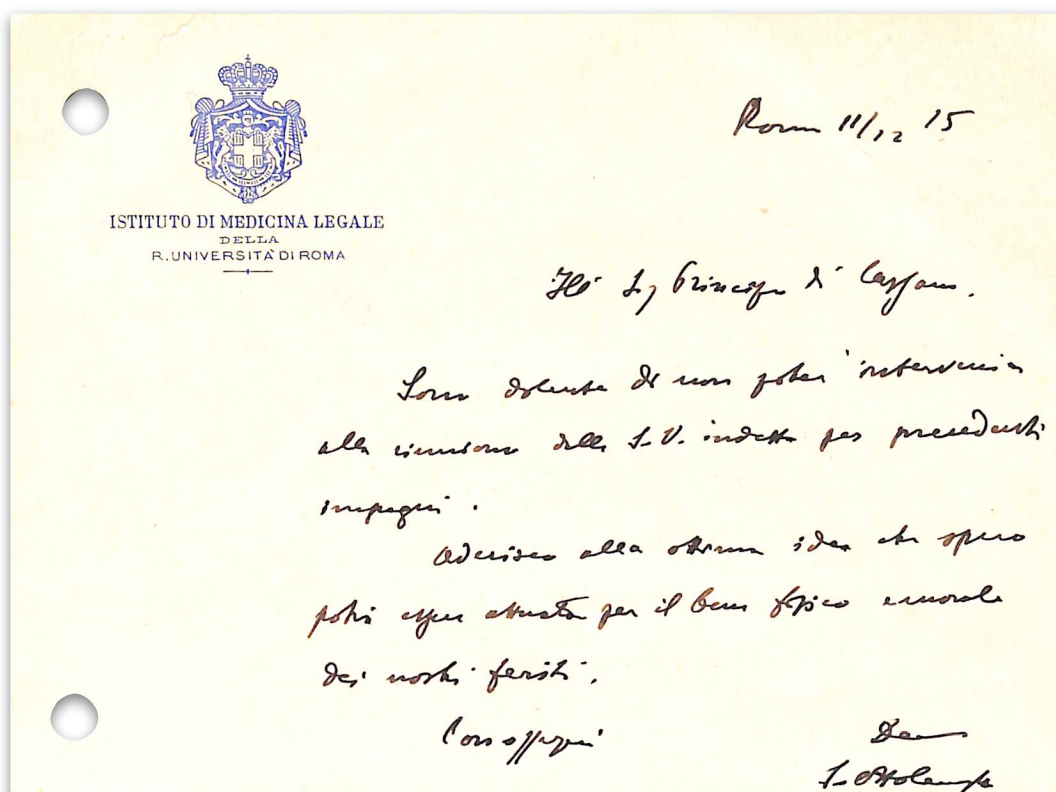 ISTITUTO DI MEDICINA LEGALE
DELLA
R. UNIVERSITÀ DI ROMA
Roma 11/12 15
Ill Sig Principe di Cassano.
Sono dolente di non poter intervenire
alla riunione della S.V. indetta per precedenti
impegni.
Aderisco alla ottima idea che spero
potrà esser attuata per il bene fisico e morale
dei nostri feriti.
Con ossequi
S. Ottolenghi